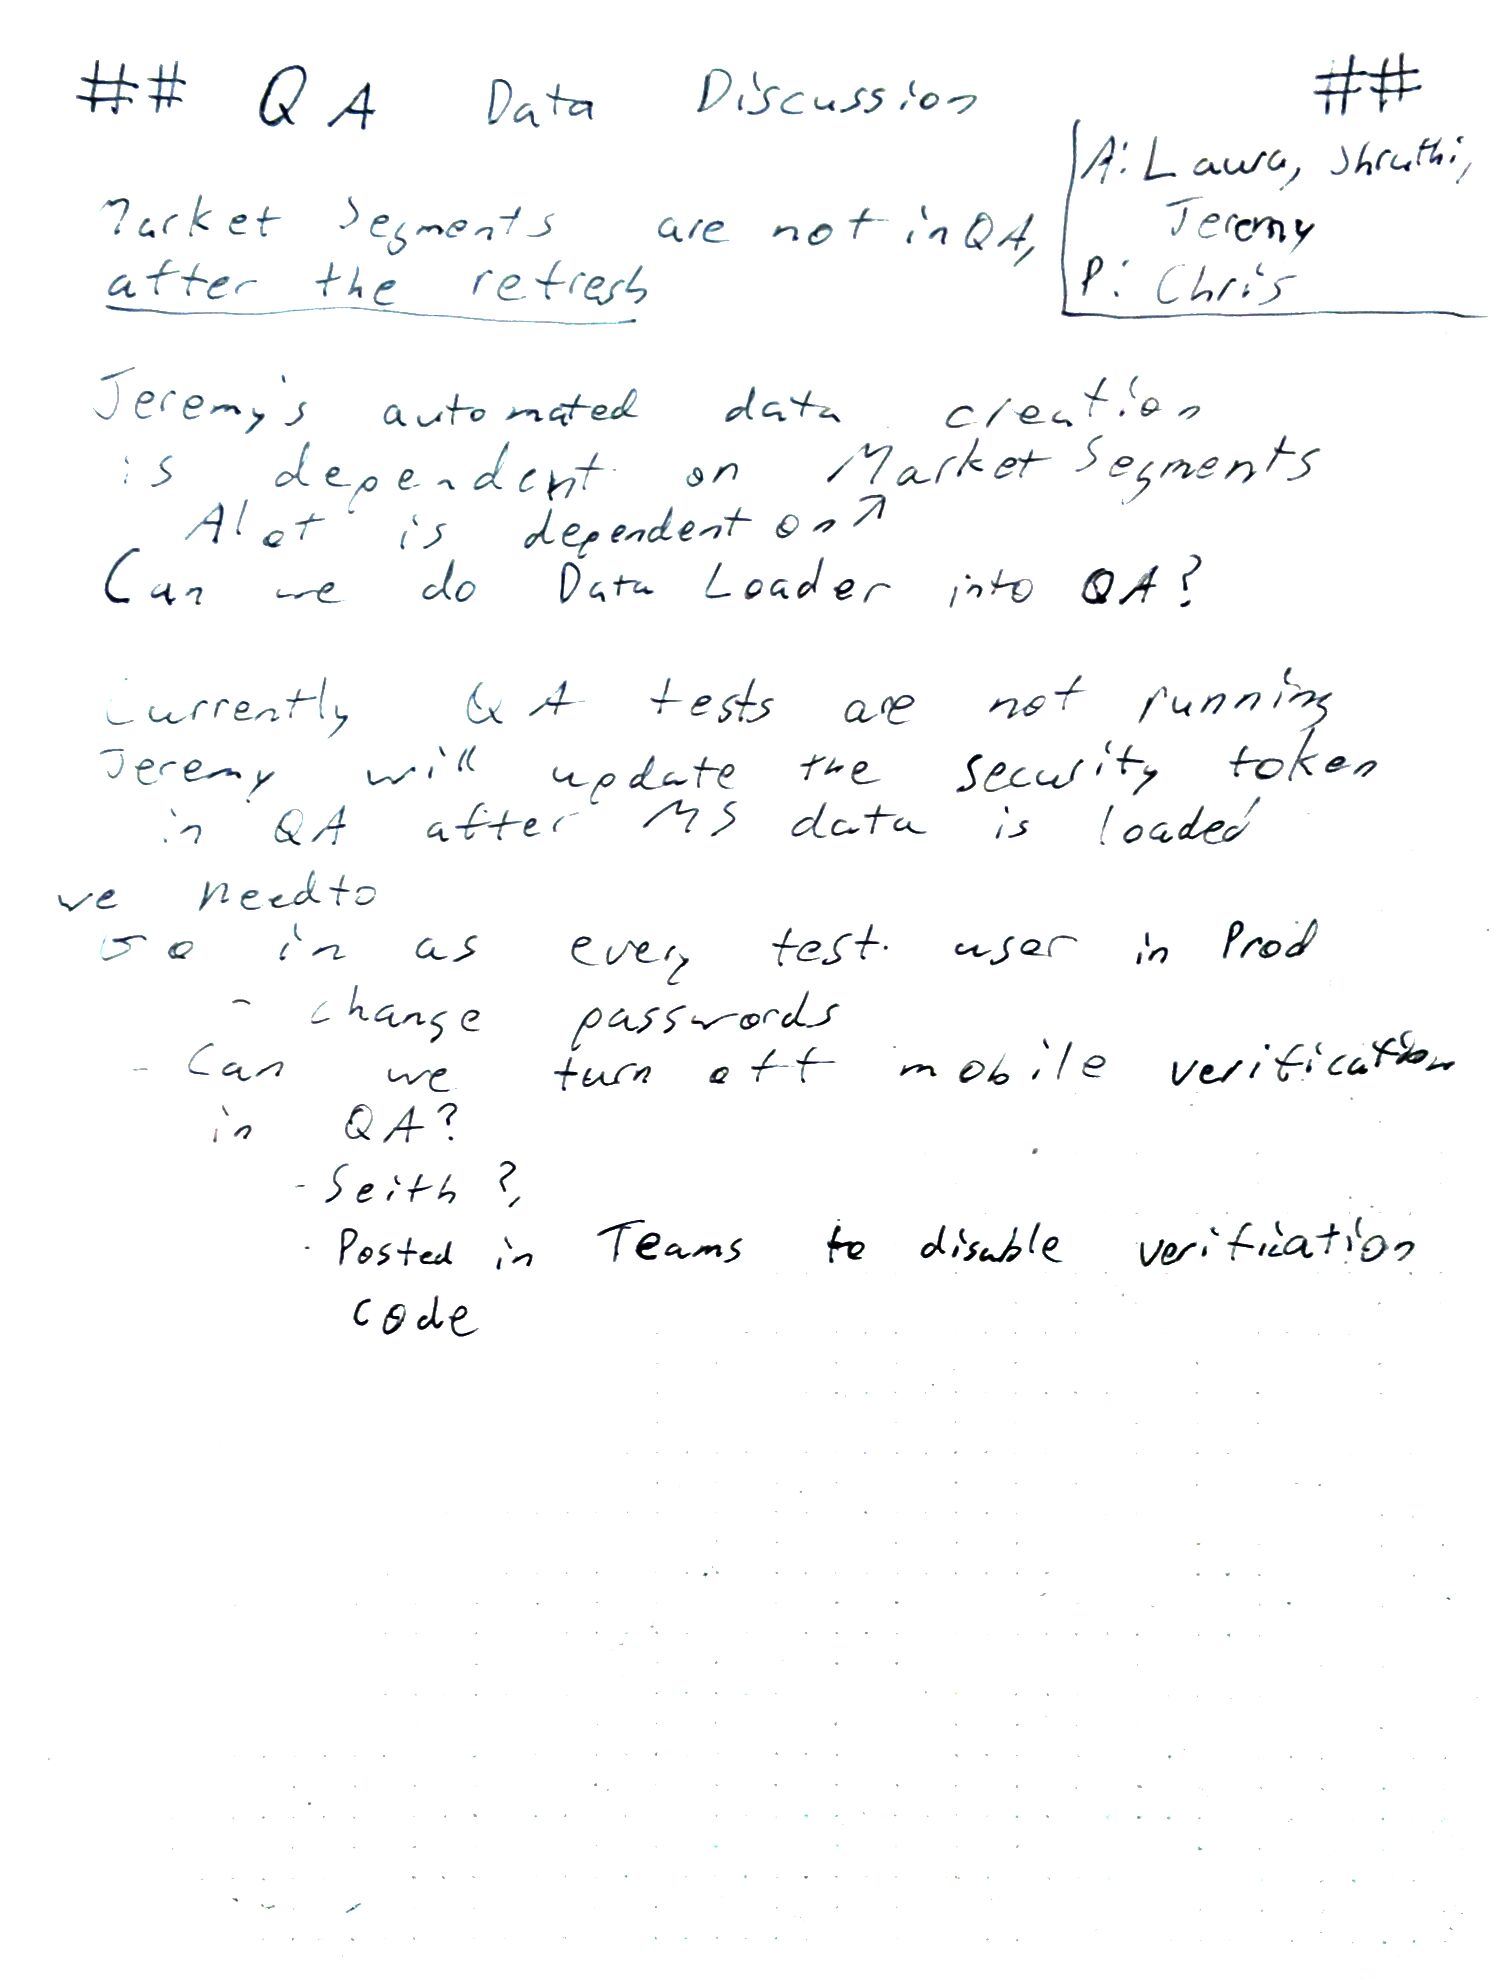 ## QA Data Discussion ##
A: Laura, Shruthi,
Jeremy
P: Chris
Market Segments are not in QA,
after the refresh
Jeremy's automated data creation
is dependent on Market Segments
Alot is dependent on ↗
Can we do Data Loader into QA?
Currently QA tests are not running
Jeremy will update the security token
in QA after MS data is loaded
we need to
Go in as every test user in Prod
- change passwords
- Can we turn off mobile verification
in QA?
- Seith?,
- Posted in Teams to disable verification
code